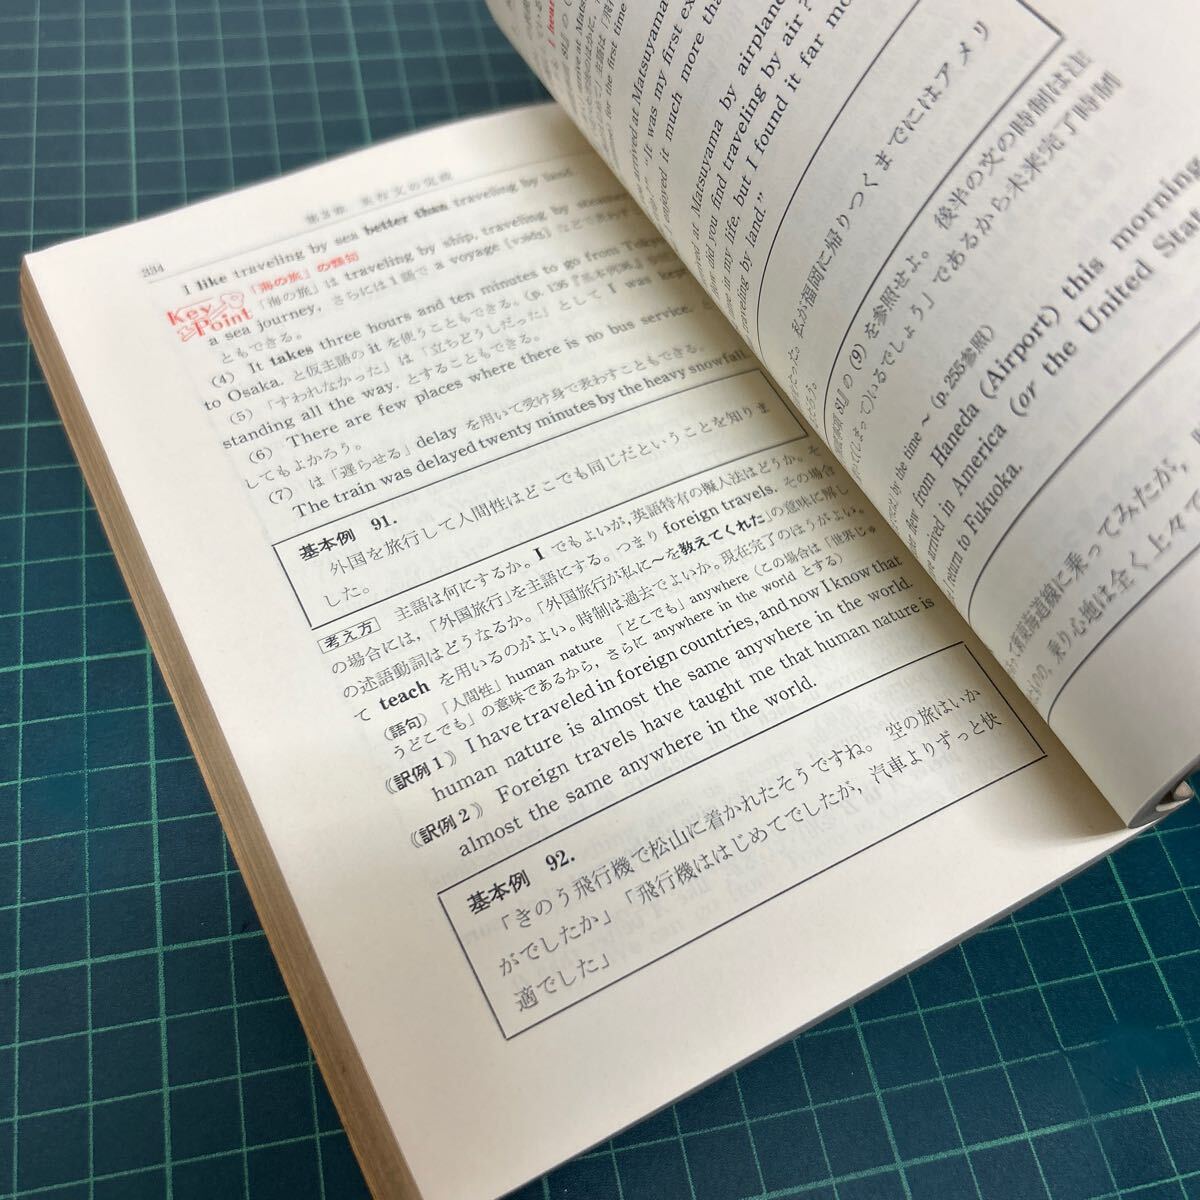 334
第3部 英作文の完成
I like traveling by sea better than traveling by land.
Key Point
「海の旅」の類句
「海の旅」は traveling by ship, traveling by steamer,
a sea journey, さらには1語で a voyage
ともできる。
(4) It takes three hours and ten minutes to go from Tokyo
to Osaka. と仮主語の it を使うこともできる。(p. 136
(5) 「すわれなかった」は「立ちどうしだった」として I was kept
standing all the way. とすることもできる。
(6) There are few places where there is no bus service. と
してもよかろう。
(7) は「遅らせる」delay を用いて受け身で表わすこともできる。
The train was delayed twenty minutes by the heavy snowfall.
基本例 91.
外国を旅行して人間性はどこでも同じだということを知りま
した。
考え方 主語は何にするか。I でもよいが,英語特有の擬人法はどうか。そ
の場合には,「外国旅行」を主語にする。つまり foreign travels. その場合
の述語動詞はどうなるか。「外国旅行が私に〜を教えてくれた」の意味に解し
て teach を用いるのがよい。時制は過去でよいか。現在完了のほうがよい。
(語句) 「人間性」human nature 「どこでも」anywhere (この場合は「世界じゅ
うどこでも」の意味であるから,さらに anywhere in the world とする)
《訳例1》 I have traveled in foreign countries, and now I know that
human nature is almost the same anywhere in the world.
《訳例2》 Foreign travels have taught me that human nature is
almost the same anywhere in the world.
基本例 92.
「きのう飛行機で松山に着かれたそうですね。空の旅はいか
がでしたか」「飛行機ははじめてでしたが,汽車よりずっと快
適でした」
for the first time
arrived at Matsuyama
"It was my first ex
enjoyed it much more tha
at Matsuyama by airplane
did you find traveling by air?
in my life, but I found it far mo
traveling by land."
私が福岡に帰りつくまでにはアメリ
の (9) を参照せよ。 後半の文の時制は注
いるでしょう」であるから未来完了時制
by the time 〜 (p. 255参照)
flew from Haneda (Airport) this morning
arrived in America (or the United Sta
return to Fukuoka.
に乗ってみたが,
乗り心地は全く上々で